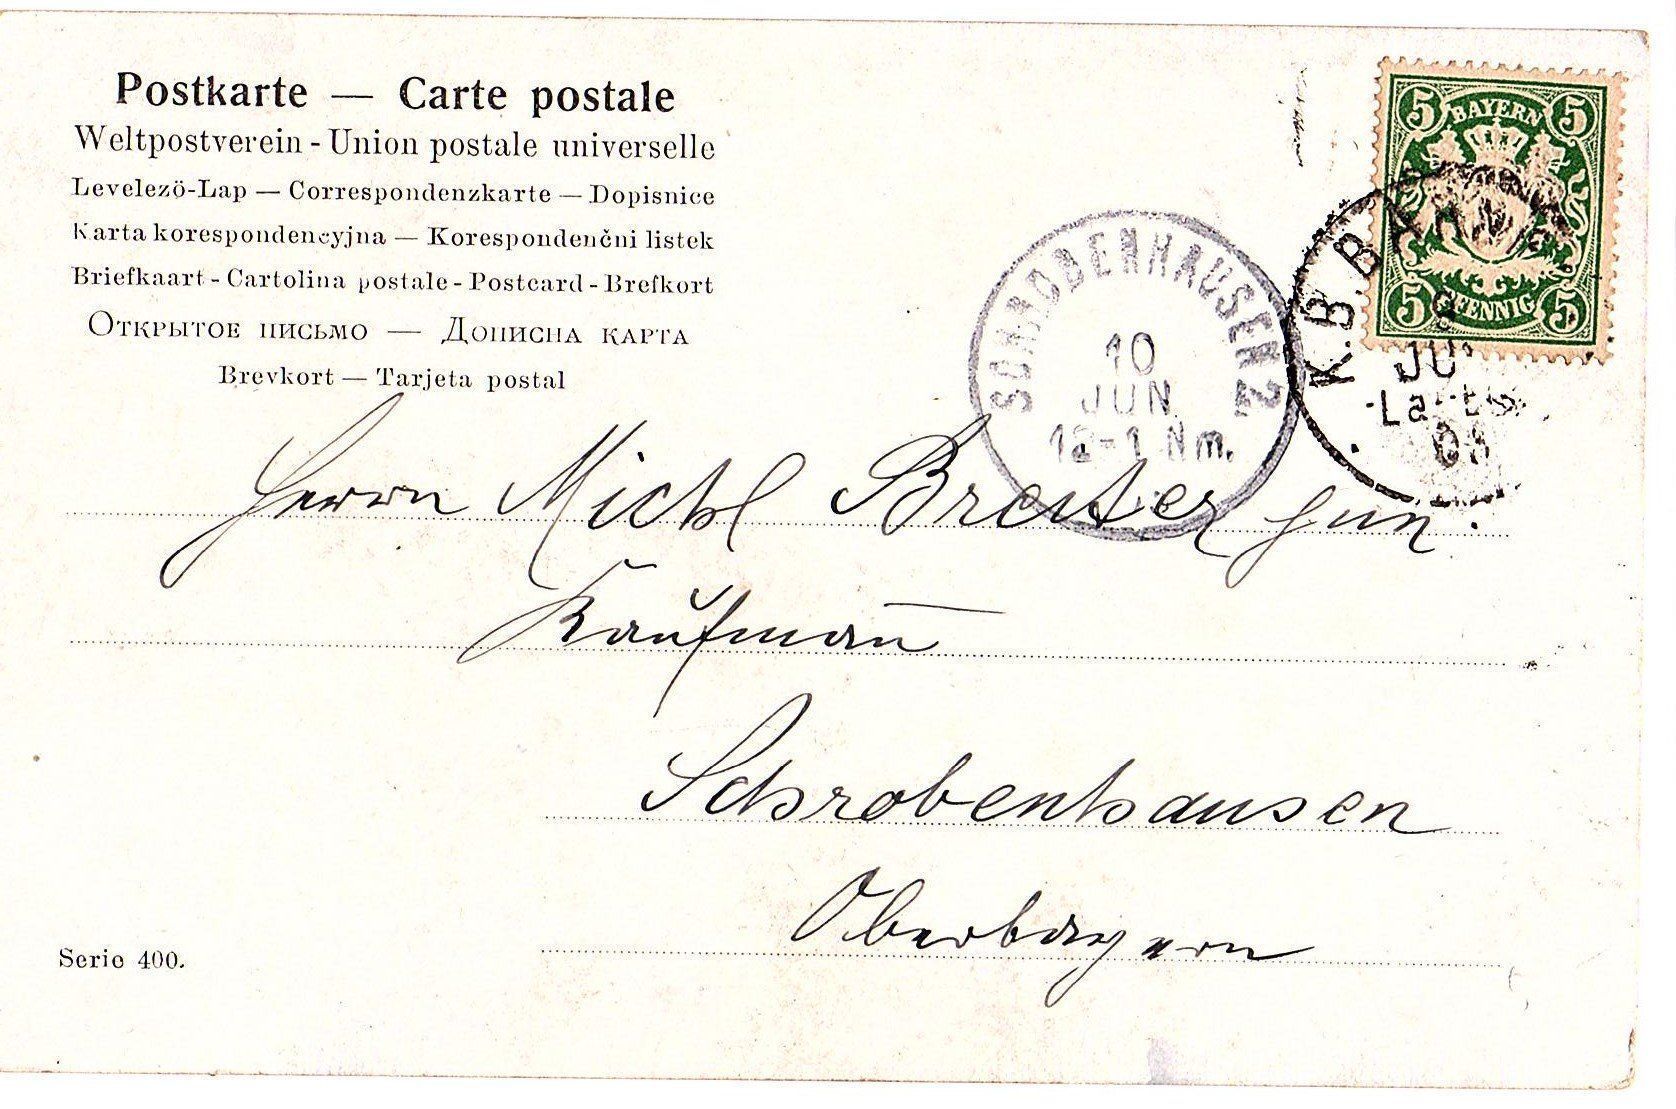 Postkarte — Carte postale
Weltpostverein - Union postale universelle
Levelezö-Lap — Correspondenzkarte — Dopisnice
Karta korespondencyjna — Korespondenčni listek
Briefkaart - Cartolina postale - Postcard - Brefkort
Открытое письмо — Дописна карта
Brevkort — Tarjeta postal
5 BAYERN 5
5 PFENNIG 5
K.B.BAHNP
JU
05
SCHROBENHAUSEN 2
10
JUN
12-1 Nm.
Herrn Michl Breiter jun.
Kaufman̄
Schrobenhausen
Oberbayern
Serie 400.